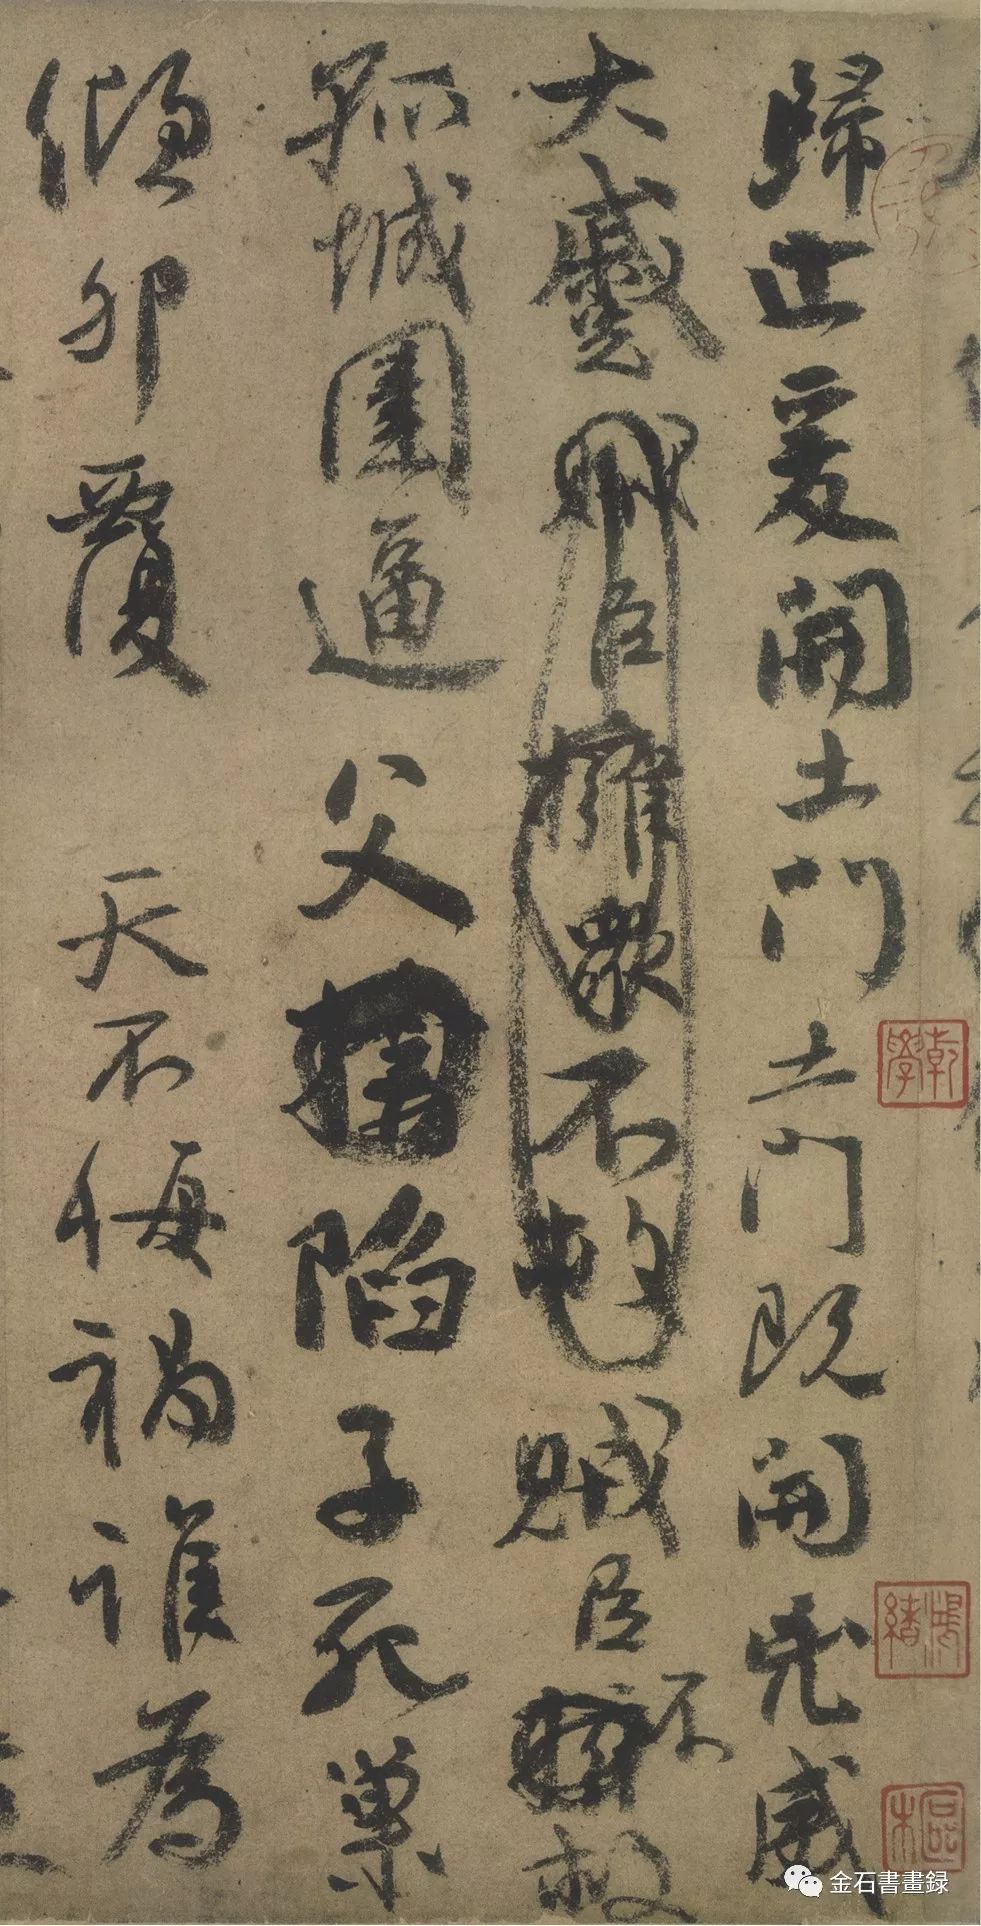 歸止爰開土門土門既開凶威
大蹙賊臣擁衆不救賊臣不救
孤城圍逼父陷子死巢
傾卵覆天不悔禍誰為
乾學
鴻緒
樞
金石書畫録